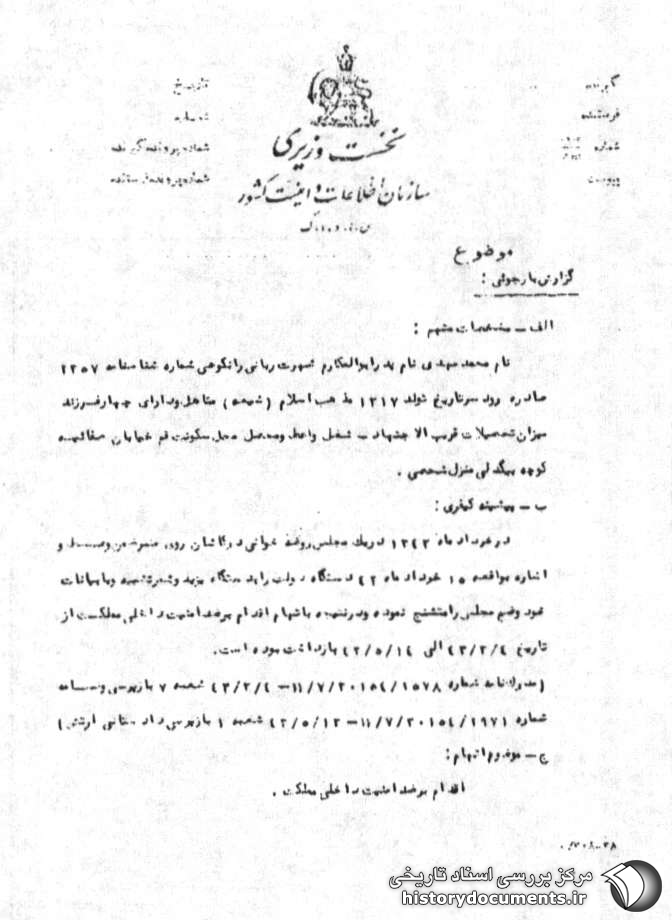 گیرنده
فرستنده
شماره
پیوست
تاریخ
شماره
شماره پرونده گیرنده
شماره پرونده فرستنده
نخست وزیری
سازمان اطلاعات و امنیت کشور
س.ا.و.ا.ک
موضوع
گزارش بازجوئی :
الف - مشخصات متهم :
نام محمد مهدی نام پدر ابوالمکارم شهرت ربانی رانکوهی شماره شناسنامه ۲۲۵۷
صادره رود سر تاریخ تولد ۱۳۱۷ مذهب اسلام (شیعه) متاهل و دارای چهار فرزند
میزان تحصیلات قریب الاجتهاد شغل واعظ و محصل محل سکونت قم خیابان صفائیه
کوچه بیگدلی منزل شخصی .
ب - پیشینه کیفری :
در خرداد ماه ۱۳۴۳ در یک مجلس روضه خوانی در کاشان روی منبر و
اشاره بواقعه ۱۵ خرداد ماه ۴۲ دستگاه دولت را بدستگاه یزید و شمر تشبیه و با بیانات
خود وضع مجلس را متشنج نموده و در نتیجه باتهام اقدام بر ضد امنیت داخلی مملکت از
تاریخ ۴۳/۳/۴ الی ۴۳/۵/۱۴ بازداشت بوده است.
شماره ۱۱/۷/۲۰۱۵۴/۱۵۷۸-۴۳/۳/۴ شعبه ۷ بازپرسی و نامه
شماره ۱۱/۷/۲۰۱۵۴/۱۹۷۱-۴۳/۵/۱۳ شعبه ۱ بازپرسی دادستانی ارتش)
ج - موضوع اتهام :
اقدام بر ضد امنیت داخلی مملکت .
مرکز بررسی اسناد تاریخی
historydocuments.ir